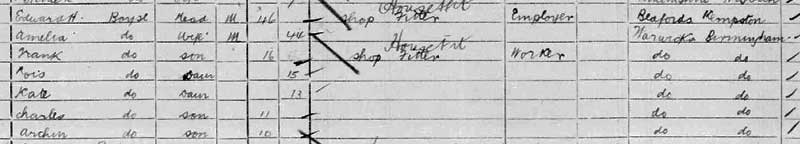 House & Fit
Edward H. Boyse Head M 46 Shop Fitter Employer Beafords Kempston
Amelia do Wife M 44 Warwicks Birmingham
House Fit
Frank do son 16 shop Fitter Worker do do
Lois do Daur 15 do do
Kate do Daur 13 do do
Charles do son 11 do do
Archie do son 10 do do